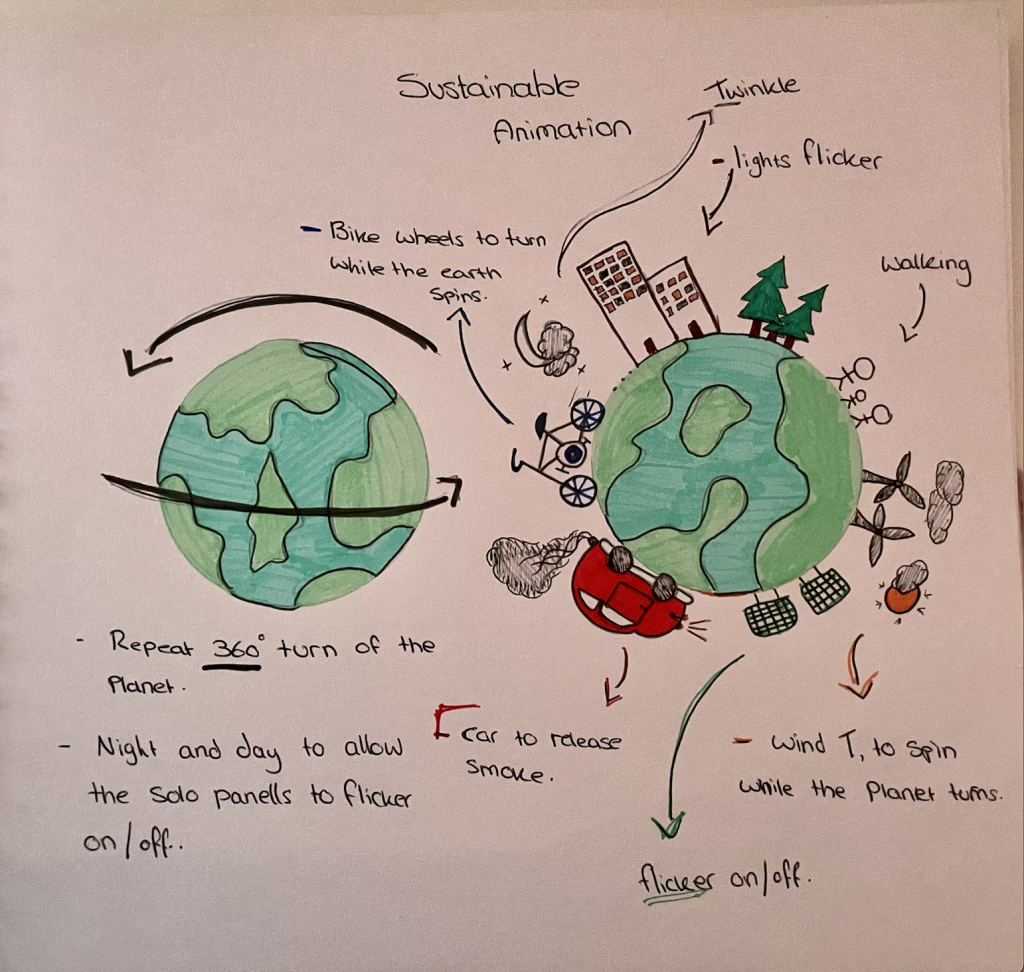 Sustainable
Animation
Twinkle
- lights flicker
- Bike wheels to turn
while the earth
spins.
walking
- Repeat 360° turn of the
Planet.
- Night and day to allow
the Solo panells to flicker
on/off.
Car to release
Smoke.
- Wind T, to spin
while the Planet turns.
flicker on/off.